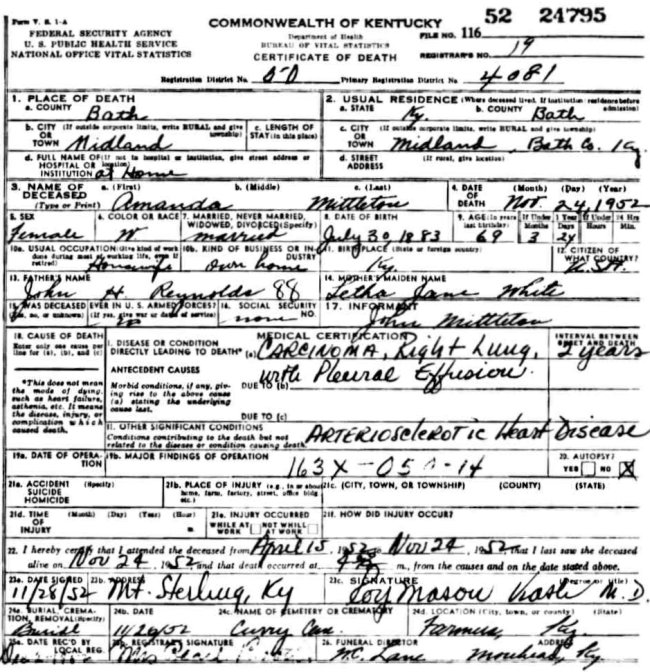 Form V. S. 1-A
FEDERAL SECURITY AGENCY
U. S. PUBLIC HEALTH SERVICE
NATIONAL OFFICE VITAL STATISTICS
COMMONWEALTH OF KENTUCKY
Department of Health
BUREAU OF VITAL STATISTICS
CERTIFICATE OF DEATH
52 24795
FILE NO. 116
REGISTRAR'S NO. 19
Registration District No. Primary Registration District No. 4081
1. PLACE OF DEATH
a. COUNTY Bath
2. USUAL RESIDENCE (Where deceased lived. If institution: residence before admission)
a. STATE Ky. b. COUNTY Bath
b. CITY (If outside corporate limits, write RURAL and give township) OR TOWN Midland
c. LENGTH OF STAY (in this place)
c. CITY (If outside corporate limits, write RURAL and give township) OR TOWN Midland, Bath Co. Ky
d. FULL NAME OF (If not in hospital or institution, give street address or location) HOSPITAL OR INSTITUTION at Home
d. STREET ADDRESS (If rural, give location)
3. NAME OF DECEASED (Type or Print) a. (First) Amanda b. (Middle) c. (Last) Mittleton
4. DATE OF DEATH (Month) (Day) (Year) Nov. 24, 1952
5. SEX Female
6. COLOR OR RACE W
7. MARRIED, NEVER MARRIED, WIDOWED, DIVORCED (Specify) married
8. DATE OF BIRTH July 30 1883
9. AGE (In years last birthday) 69 If Under 1 Year Months 3 Days 24 If Under 24 Hrs Hours Min.
10a. USUAL OCCUPATION (Give kind of work done during most of working life, even if retired) Housewife
10b. KIND OF BUSINESS OR INDUSTRY own home
11. BIRTHPLACE (State or foreign country) Ky.
12. CITIZEN OF WHAT COUNTRY? U.S.A.
13. FATHER'S NAME John H. Reynolds 88
14. MOTHER'S MAIDEN NAME Letha Jane White
15. WAS DECEASED EVER IN U. S. ARMED FORCES? (Yes, no, or unknown) (If yes, give war or dates of service) no
16. SOCIAL SECURITY NO. none
17. INFORMANT John Mittleton
18. CAUSE OF DEATH
Enter only one cause per line for (a), (b), and (c)
MEDICAL CERTIFICATION
INTERVAL BETWEEN ONSET AND DEATH
I. DISEASE OR CONDITION DIRECTLY LEADING TO DEATH* (a) CARCINOMA, Right Lung, 2 years
with Pleural Effusion.
*This does not mean the mode of dying, such as heart failure, asthenia, etc. It means the disease, injury, or complication which caused death.
ANTECEDENT CAUSES
Morbid conditions, if any, giving rise to the above cause (a) stating the underlying cause last.
DUE TO (b)
DUE TO (c)
II. OTHER SIGNIFICANT CONDITIONS
Conditions contributing to the death but not related to the disease or condition causing death.
ARTERIOSCLEROTIC Heart Disease
19a. DATE OF OPERATION
19b. MAJOR FINDINGS OF OPERATION
163X
20. AUTOPSY? YES NO X
21a. ACCIDENT SUICIDE HOMICIDE (Specify)
21b. PLACE OF INJURY (e.g., in or about home, farm, factory, street, office bldg., etc.)
21c. (CITY, TOWN, OR TOWNSHIP) (COUNTY) (STATE)
21d. TIME OF INJURY (Month) (Day) (Year) (Hour)
21e. INJURY OCCURRED WHILE AT WORK NOT WHILE AT WORK
21f. HOW DID INJURY OCCUR?
22. I hereby certify that I attended the deceased from April 15, 1952 to Nov 24, 1952 that I last saw the deceased
alive on Nov 24, 1952 and that death occurred at m., from the causes and on the date stated above.
23a. DATE SIGNED 11/28/52
23b. ADDRESS Mt. Sterling, Ky
23c. SIGNATURE Mason (Degree or title) M.D.
24a. BURIAL, CREMATION, REMOVAL (Specify) Burial
24b. DATE 11/26/52
24c. NAME OF CEMETERY OR CREMATORY Curry
24d. LOCATION (City, town, or county) (State) Farmers Ky.
25a. DATE REC'D BY LOCAL REG.
25b. REGISTRAR'S SIGNATURE
26. FUNERAL DIRECTOR W.C. Lane ADDRESS Morehead, Ky